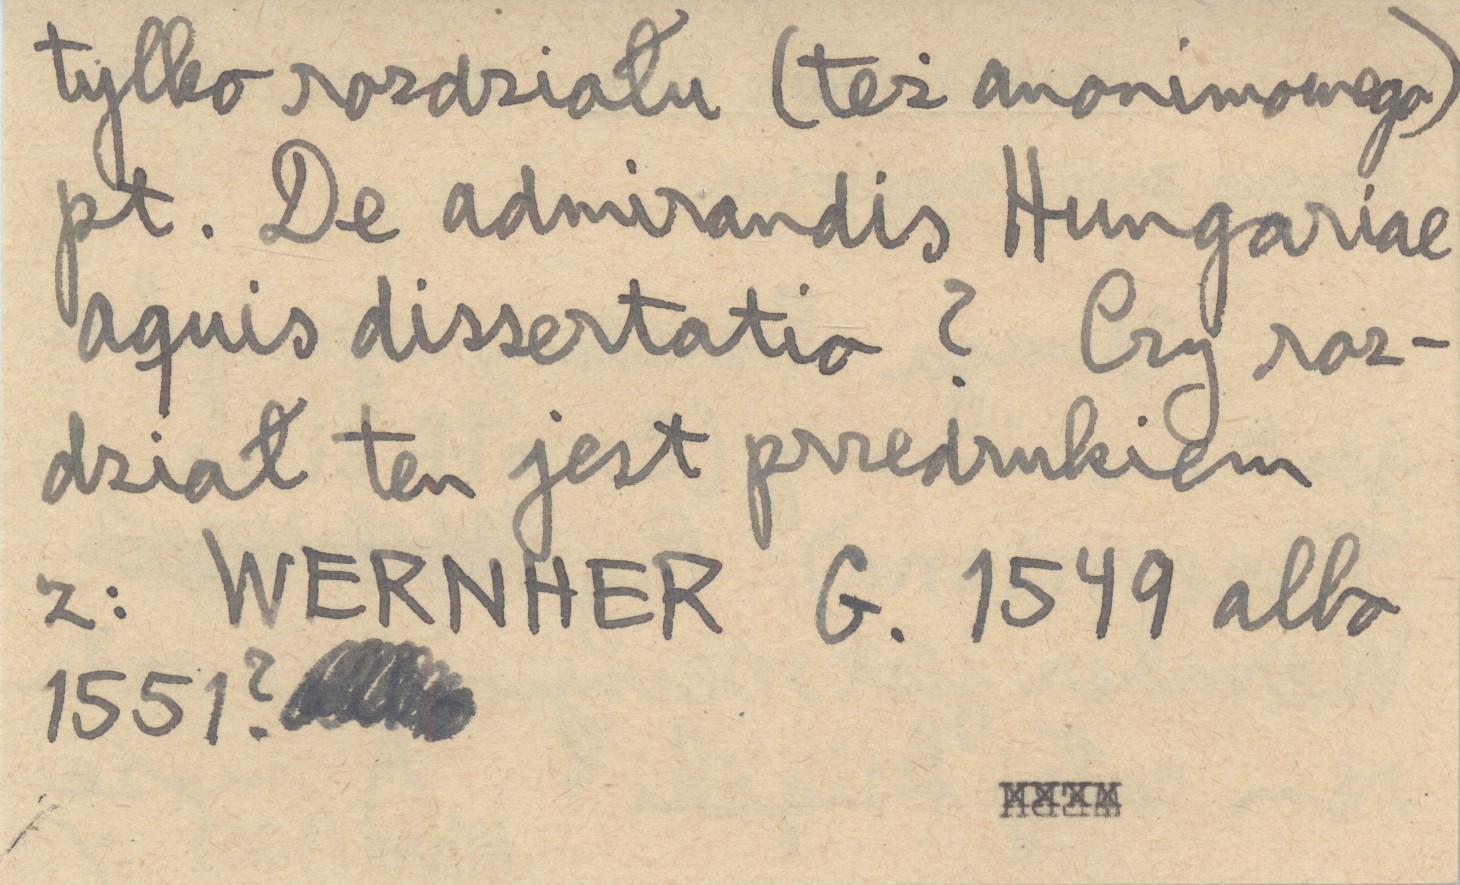 tylko rozdziału (też anonimowego)
pt. De admirandis Hungariae
aquis dissertatio? Czy roz-
dział ten jest przedrukiem
z: WERNHER G. 1549 albo
1551?